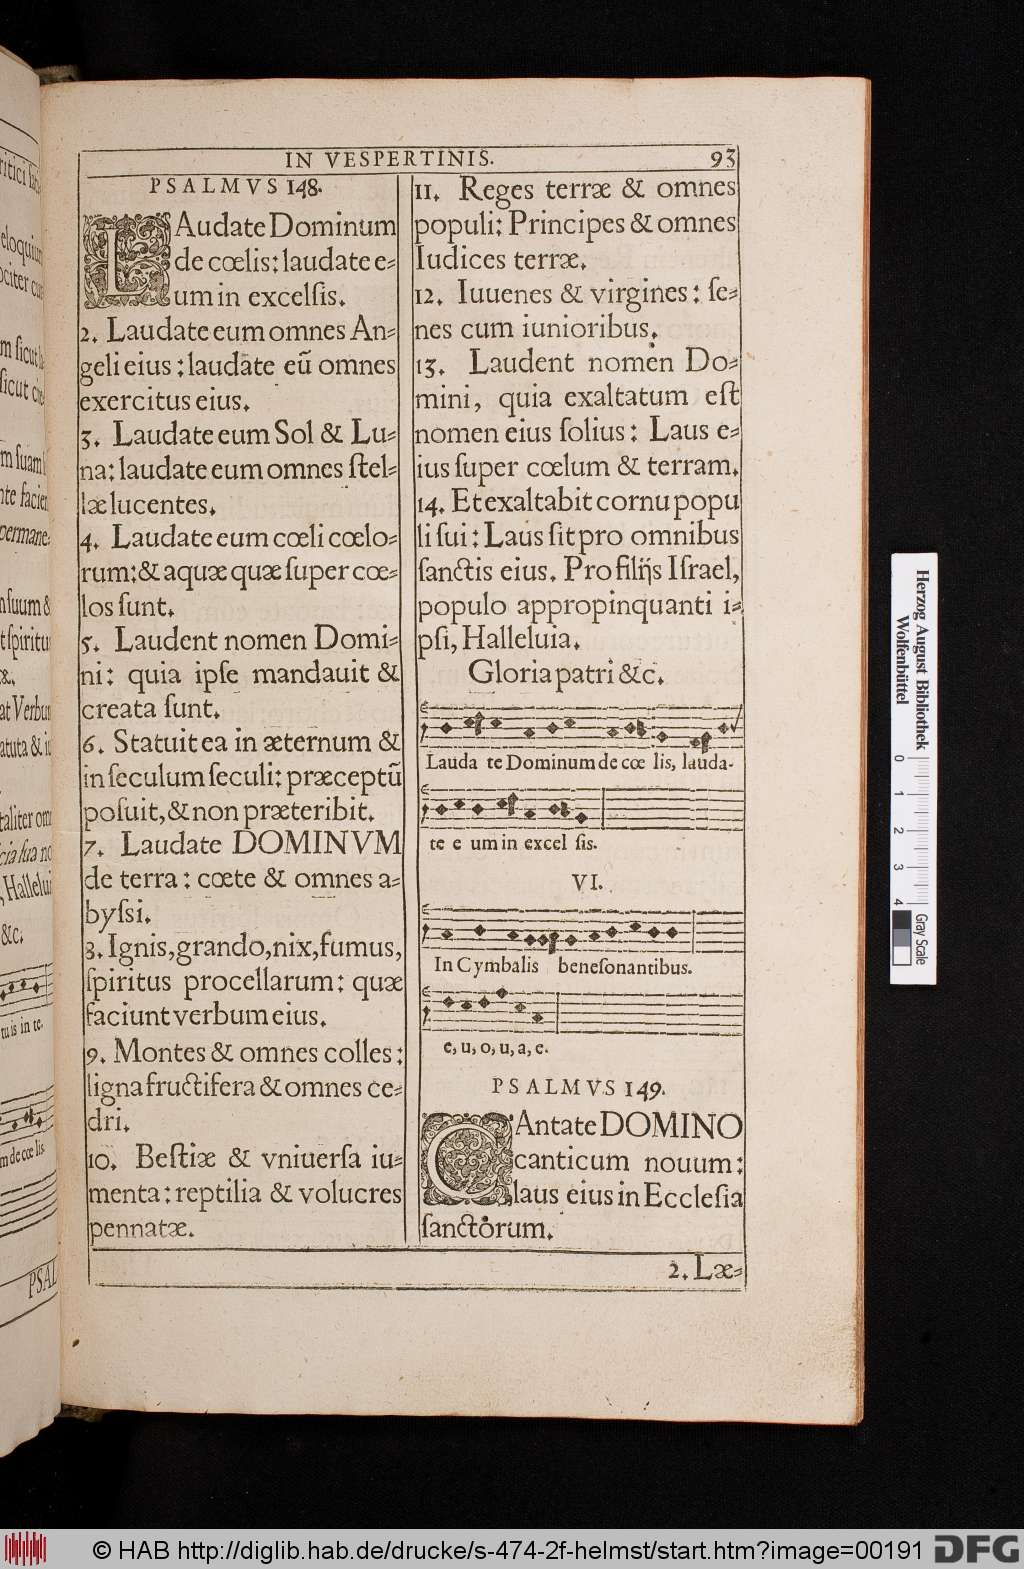 IN VESPERTINIS. 93
PSALMVS 148.
LAudate Dominum
de cœlis: laudate e-
um in excelſis.
2. Laudate eum omnes An-
geli eius: laudate eũ omnes
exercitus eius.
3. Laudate eum Sol & Lu-
na: laudate eum omnes ſtel-
læ lucentes.
4. Laudate eum cœli cœlo-
rum: & aquæ quæ ſuper cœ-
los ſunt.
5. Laudent nomen Domi-
ni: quia ipſe mandauit &
creata ſunt.
6. Statuit ea in æternum &
in ſeculum ſeculi: præceptũ
poſuit, & non præteribit.
7. Laudate DOMINVM
de terra: cœte & omnes a-
byſsi.
8. Ignis, grando, nix, fumus,
ſpiritus procellarum: quæ
faciunt verbum eius.
9. Montes & omnes colles:
ligna fructifera & omnes ce-
dri.
10. Beſtiæ & vniuerſa iu-
menta: reptilia & volucres
pennatæ.
11. Reges terræ & omnes
populi: Principes & omnes
Iudices terræ.
12. Iuuenes & virgines: ſe-
nes cum iunioribus.
13. Laudent nomen Do-
mini, quia exaltatum eſt
nomen eius ſolius: Laus e-
ius ſuper cœlum & terram.
14. Et exaltabit cornu popu
li ſui: Laus ſit pro omnibus
ſanctis eius. Pro filijs Iſrael,
populo appropinquanti i-
pſi, Halleluia.
Gloria patri &c.
Lauda te Dominum de cœ lis, lauda-
te e um in excel ſis.
VI.
In Cymbalis beneſonantibus.
e, u, o, u, a, e.
PSALMVS 149.
CAntate DOMINO
canticum nouum:
laus eius in Eccleſia
ſanctorum.
2. Læ-
Herzog August Bibliothek
Wolfenbüttel
0 1 2 3 4
Gray Scale
© HAB http://diglib.hab.de/drucke/s-474-2f-helmst/start.htm?image=00191 DFG